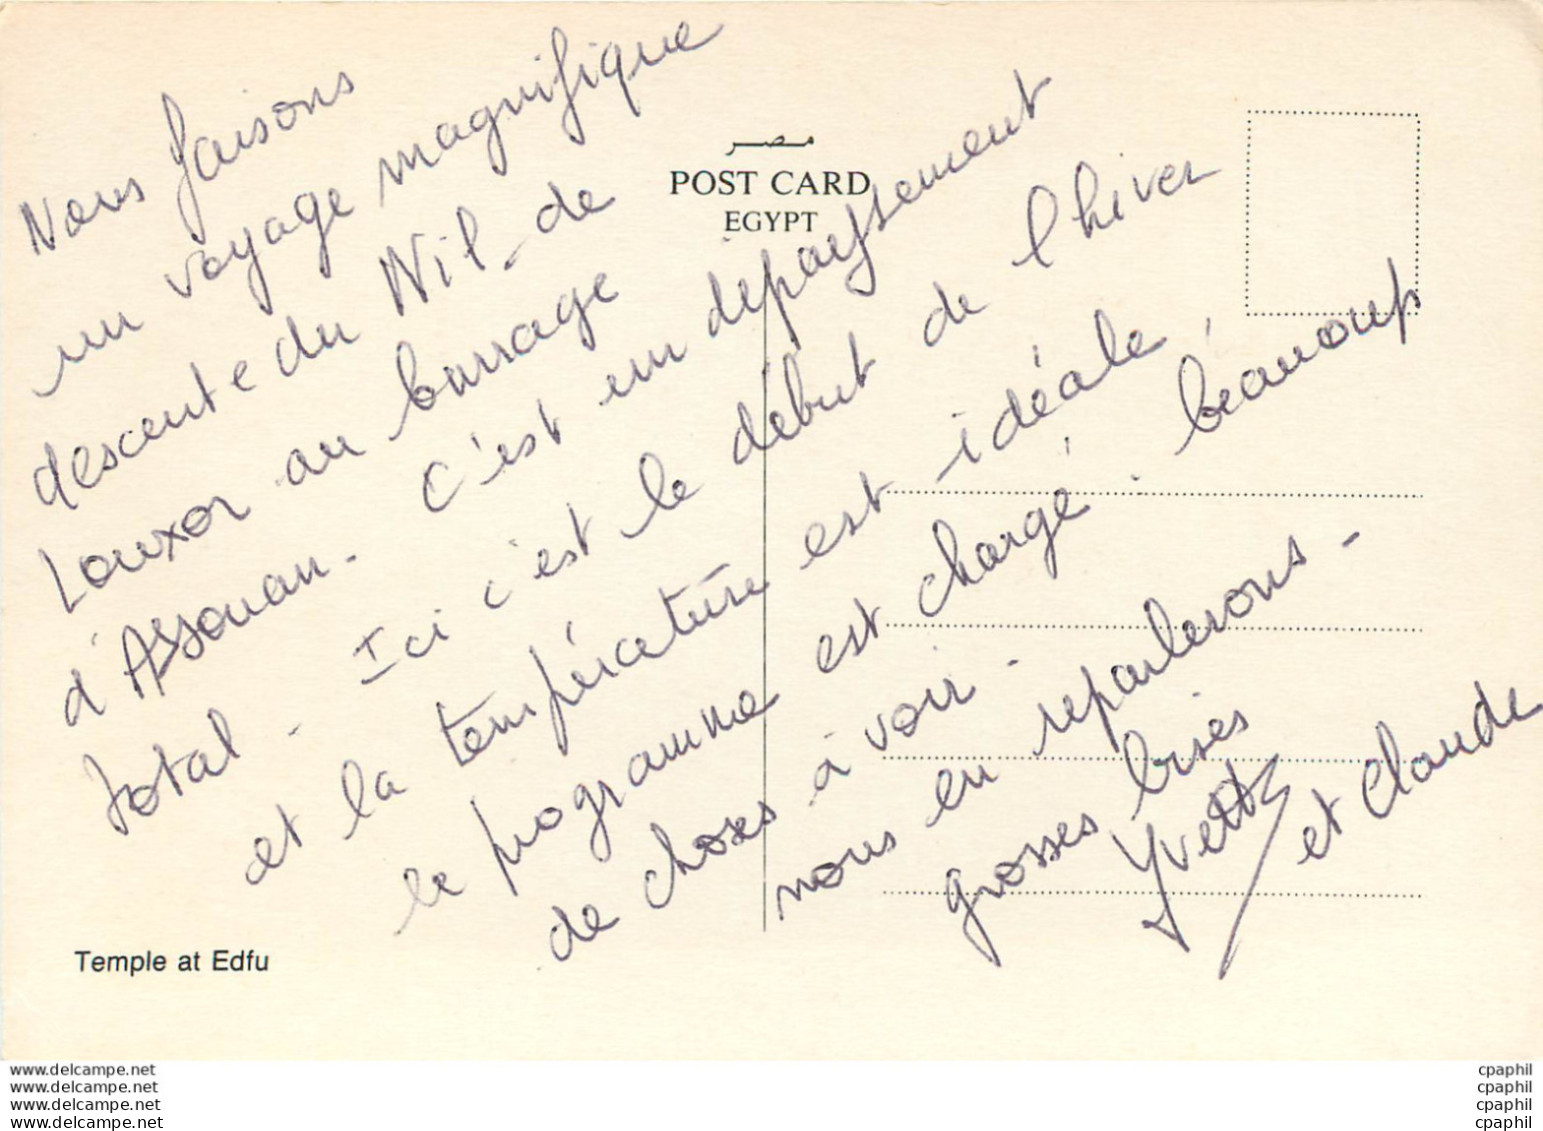 مصر
POST CARD
EGYPT
Nous faisons
un voyage magnifique
descente du Nil de
Louxor au barrage
d'Assouan. C'est un depaysement
total - Ici c'est le début de l'hiver
et la température est idéale,
le programme est chargé. beaucoup
de choses à voir.
nous en reparlerons -
grosses bises
Yvette
et Claude
Temple at Edfu
www.delcampe.net
www.delcampe.net
www.delcampe.net
www.delcampe.net
cpaphil
cpaphil
cpaphil
cpaphil